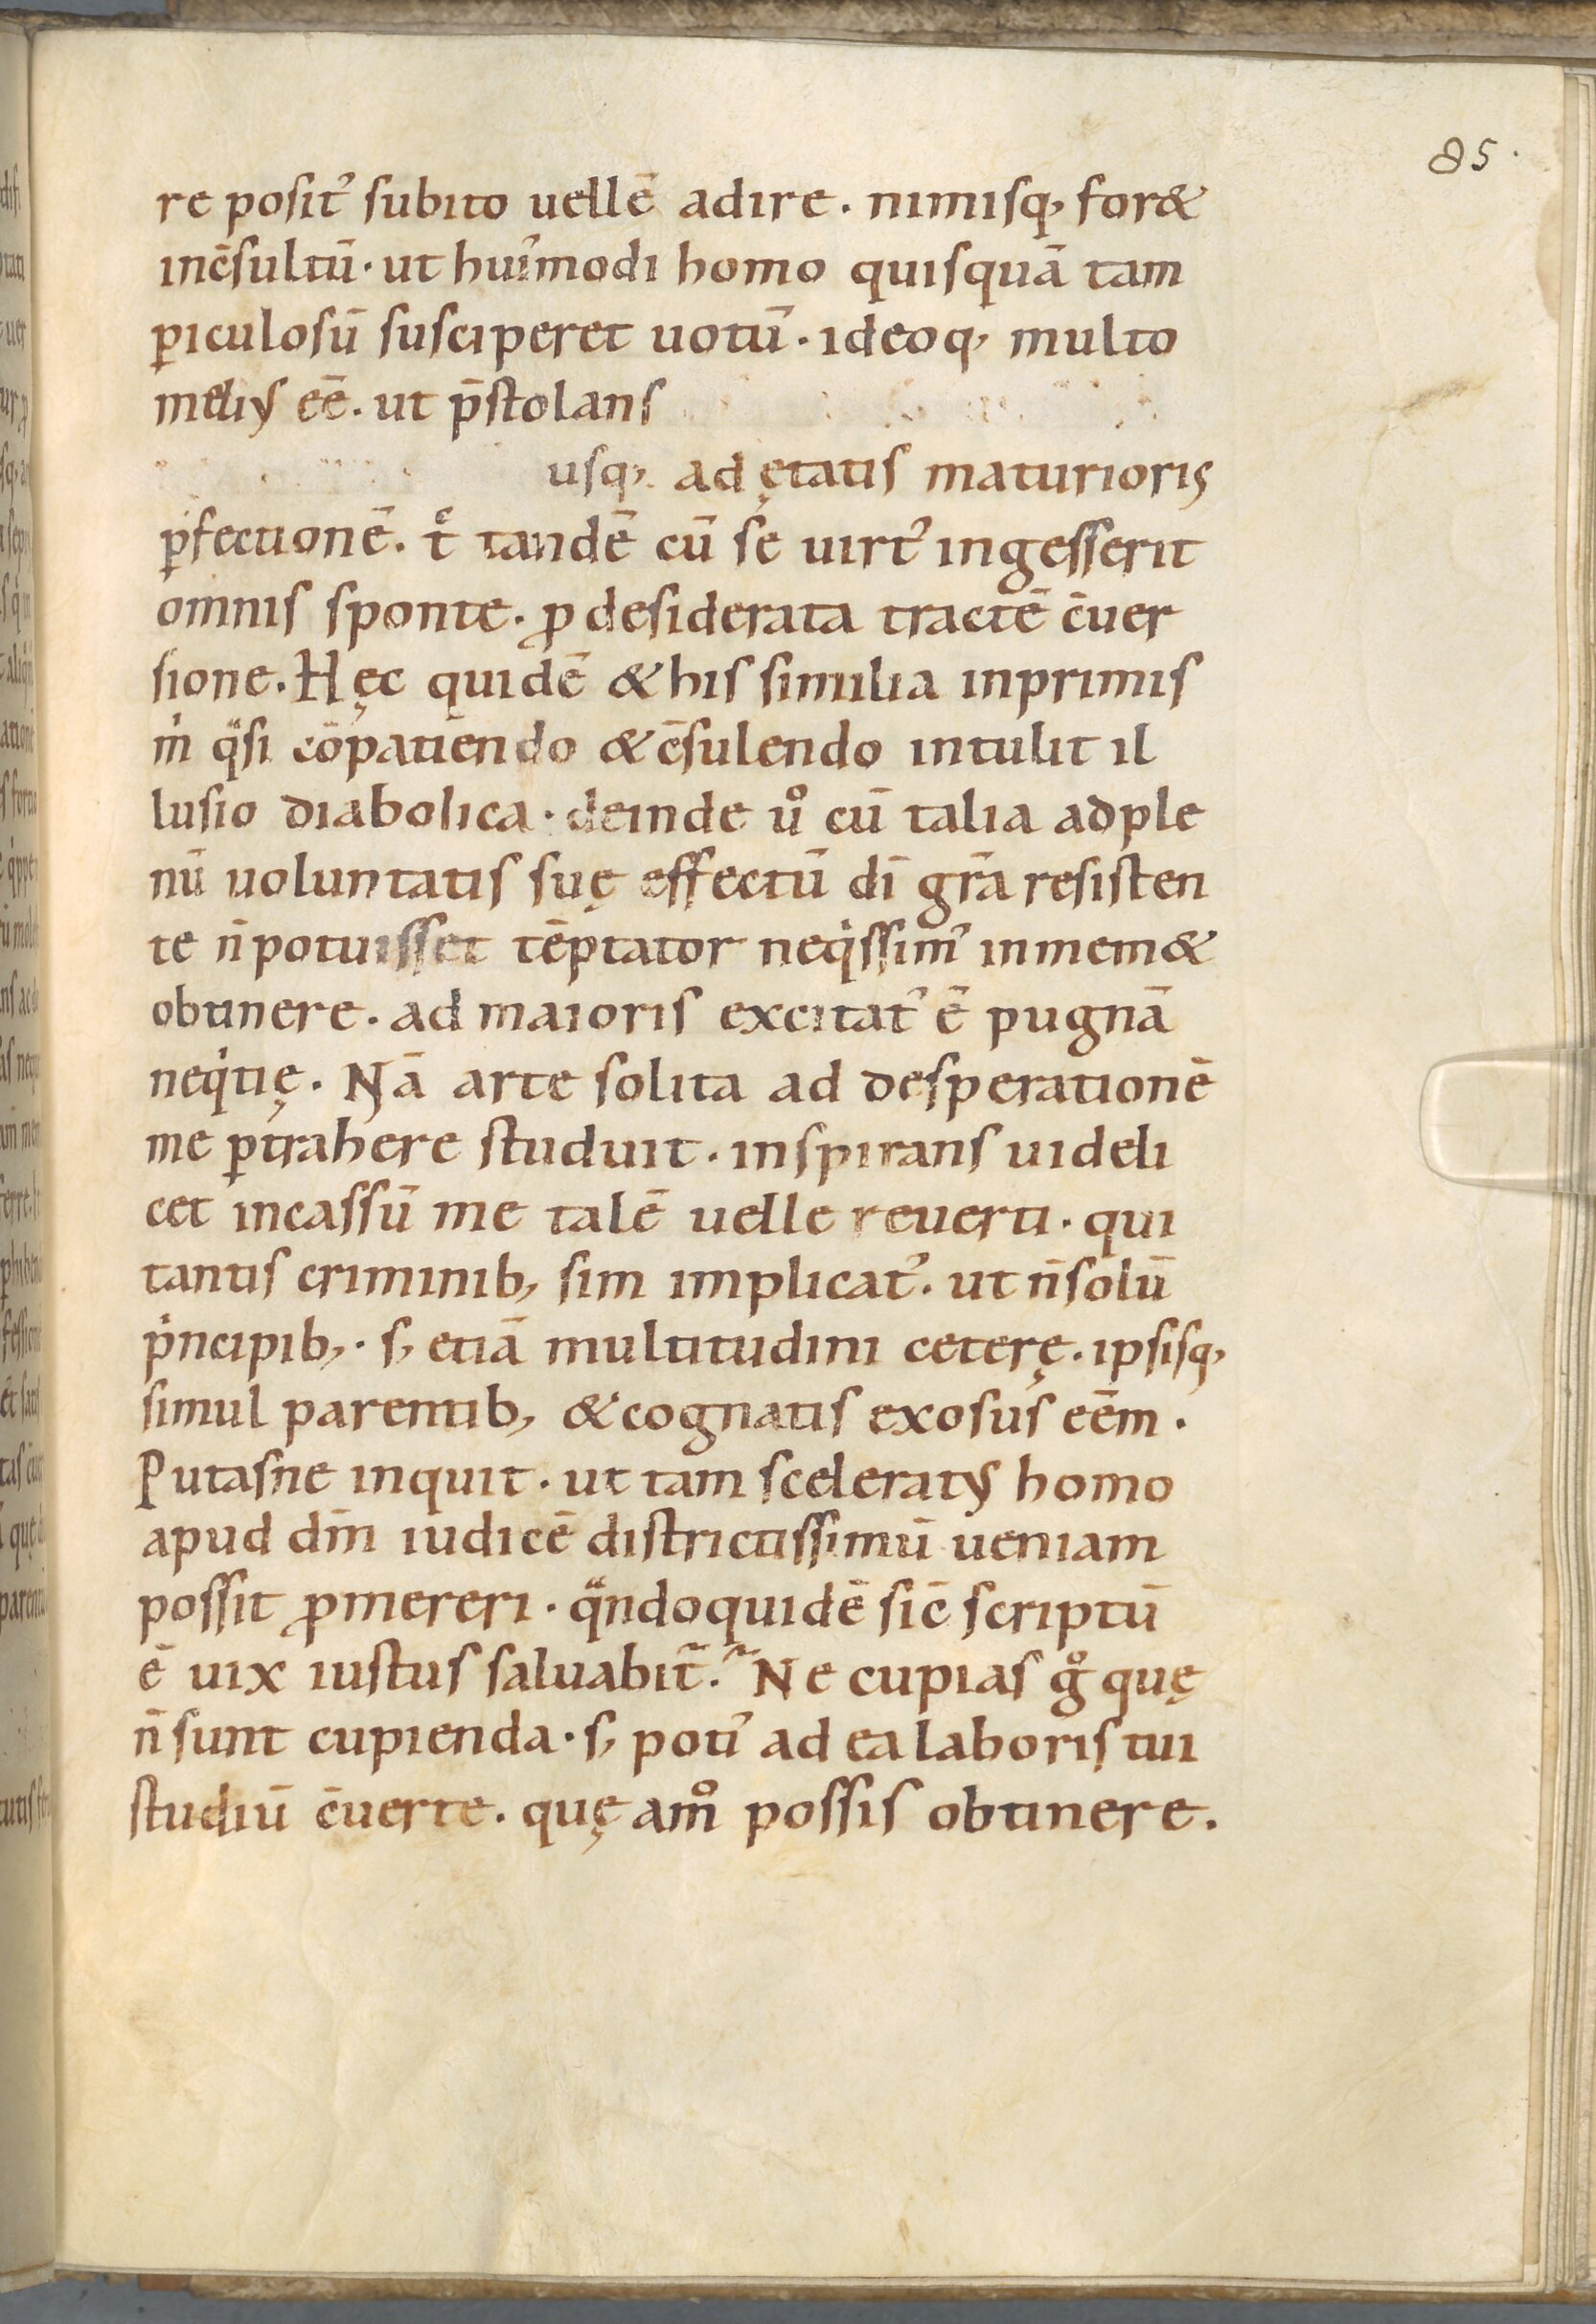 85.
re positꝰ subito uellē adire. nimisq, for&
inc̄sultū. ut huiꝰmodi homo quisquā tam
ꝑiculosū susciperet uotū. ideoq, multo
meliꝰ eē. ut p̄stolans
usq, ad ętatis maturioris
ꝑfectionē. tͨ tandē cū se uirtꝰ ingesserit
omnis sponte. ꝓ desiderata tractē c̄uer
sione. Hęc quidē & his similia inprimis
mͥ qͣsi cōpatiendo & c̄sulendo intulit il
lusio diabolica. deinde uͦ cū talia ad ple
nū uoluntatis suę effectū dī grā resisten
te n̄ potuisset tēptator neqͥssimꝰ in mem&
obtinere. ad maioris excitatꝰ ē pugnā
neqͥtię. Nā arte solita ad desperationē
me ꝑtrahere studuit. inspirans uideli
cet incassū me talē uelle reuerti. qui
tantis criminib, sim implicatꝰ. ut n̄ solū
pͥncipib,. s, etiā multitudini ceterę. ipsisq,
simul parentib, & cognatis exosus eēm.
Putasne inquit. ut tam sceleratꝰ homo
apud dm̄ iudicē districtissimū ueniam
possit ꝓmereri. qͣndoquidē sic̄ scriptū
ē uix iustus saluabit᷑. Ne cupias gͦ quę
n̄ sunt cupienda. s, potiꝰ ad ea laboris tui
studiū c̄uerte. quę amͦ possis obtinere.